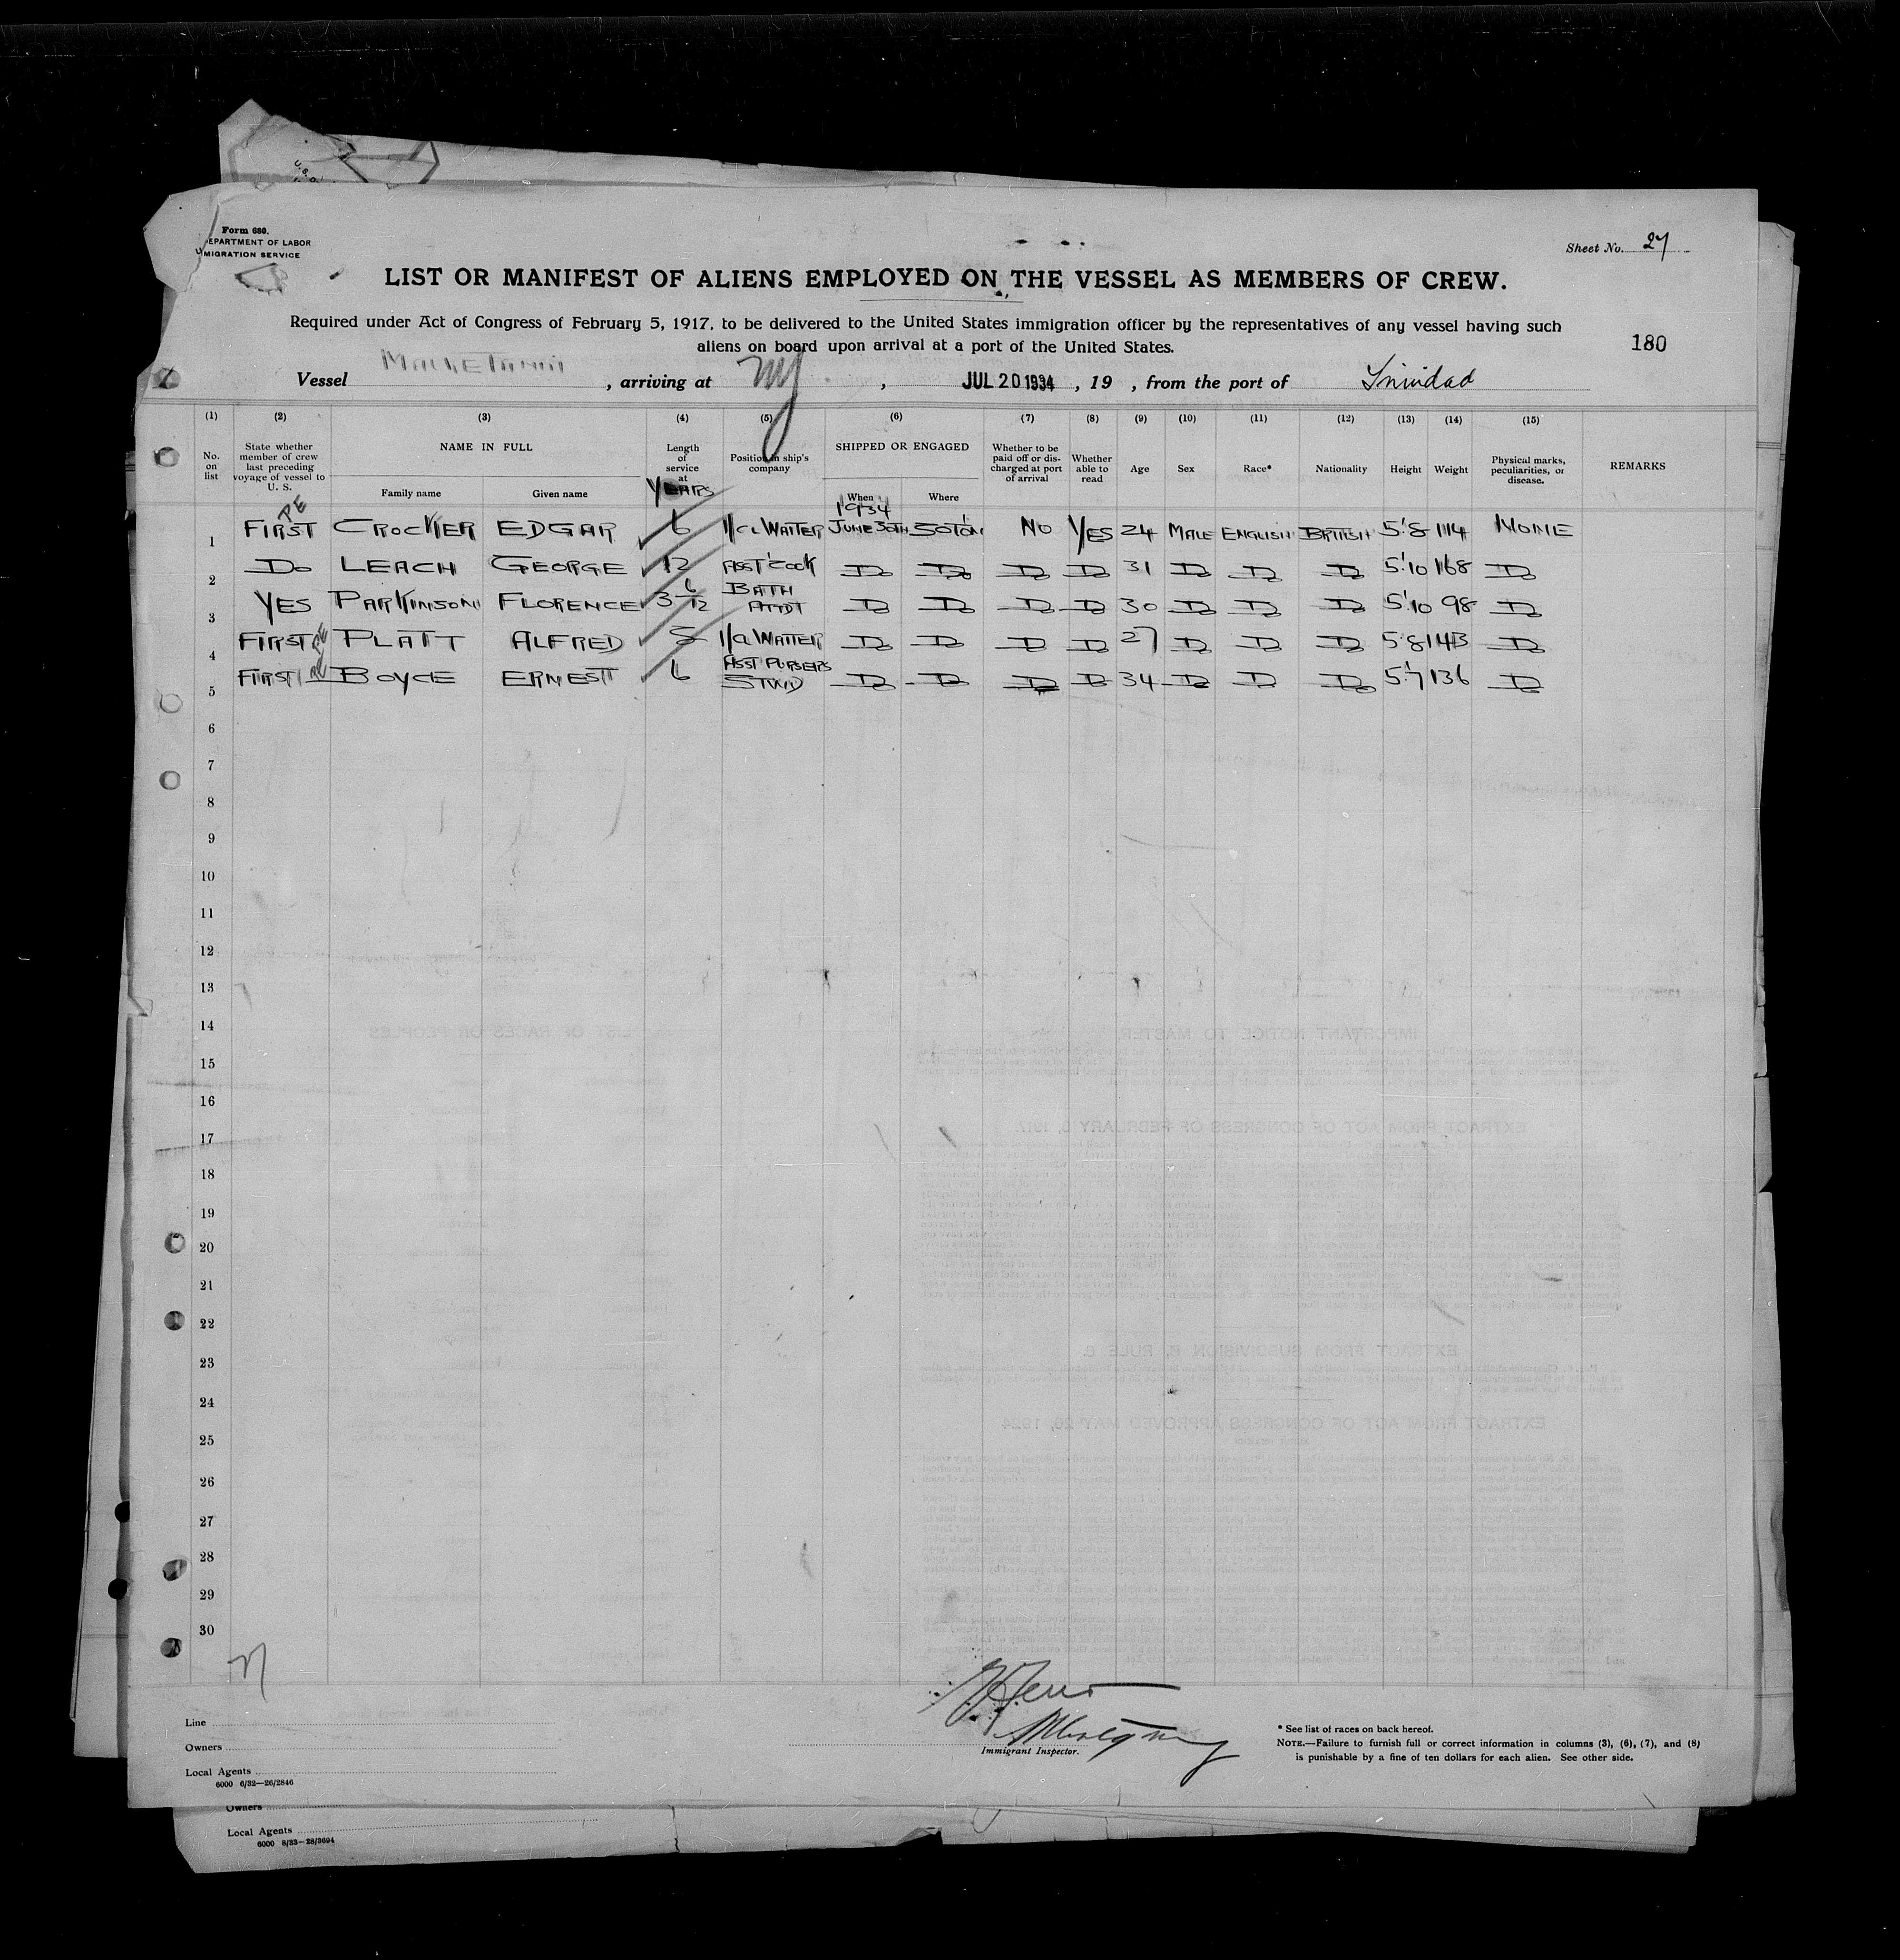 Form 680.
DEPARTMENT OF LABOR
IMMIGRATION SERVICE
Sheet No. 27
LIST OR MANIFEST OF ALIENS EMPLOYED ON THE VESSEL AS MEMBERS OF CREW.
Required under Act of Congress of February 5, 1917, to be delivered to the United States immigration officer by the representatives of any vessel having such
aliens on board upon arrival at a port of the United States.
180
Vessel Mauretania, arriving at NY, JUL 20 1934, 19 , from the port of Trinidad
(1) (2) (3) (4) (5) (6) (7) (8) (9) (10) (11) (12) (13) (14) (15)
No. on list State whether member of crew last preceding voyage of vessel to U. S. NAME IN FULL Length of service at Position in ship's company SHIPPED OR ENGAGED Whether to be paid off or discharged at port of arrival Whether able to read Age Sex Race* Nationality Height Weight Physical marks, peculiarities, or disease. REMARKS
Family name Given name YEARS When Where
1934
1 FIRST RE CROCKER EDGAR 6 1/CL WAITER JUNE 30TH SOTON NO YES 24 MALE ENGLISH BRITISH 5'8 114 NONE
2 Do LEACH GEORGE 12 ASST COOK Do Do Do Do 31 Do Do Do 5'10 168 Do
3 YES PARKINSON FLORENCE 3 6/12 BATH ATTDT Do Do Do Do 30 Do Do Do 5'10 98 Do
4 FIRST RE PLATT ALFRED 5 1/CL WAITER Do Do Do Do 27 Do Do Do 5'8 143 Do
5 FIRST RE BOYCE ERNEST 6 ASST PURSERS STWD Do Do Do Do 34 Do Do Do 5'7 136 Do
6
7
8
9
10
11
12
13
14
15
16
17
18
19
20
21
22
23
24
25
26
27
28
29
30
Line
Owners
Local Agents
6000 6/32—26/2846
Immigrant Inspector.
* See list of races on back hereof.
NOTE.—Failure to furnish full or correct information in columns (3), (6), (7), and (8)
is punishable by a fine of ten dollars for each alien. See other side.
Owners
Local Agents
6000 8/33—28/3694